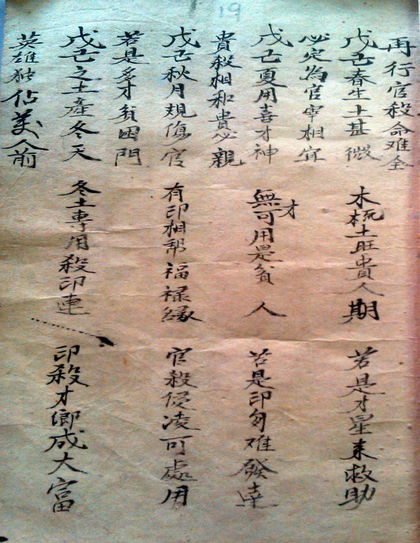 19
再行官殺命难全
戊己春生土甚微 木土旺貴人期 若是才星来救助
必定為官宰相宜
戊己夏用喜才神 無才可用是貧人 若是印難發達
貴殺相和貴必親
戊己秋月規傷官 有印相幫福禄緣 官殺侵凌可處用
若是多才貧困門
戊己之土產冬天 冬土專用殺印連 印殺才鄉成大富
英雄独佔美人前